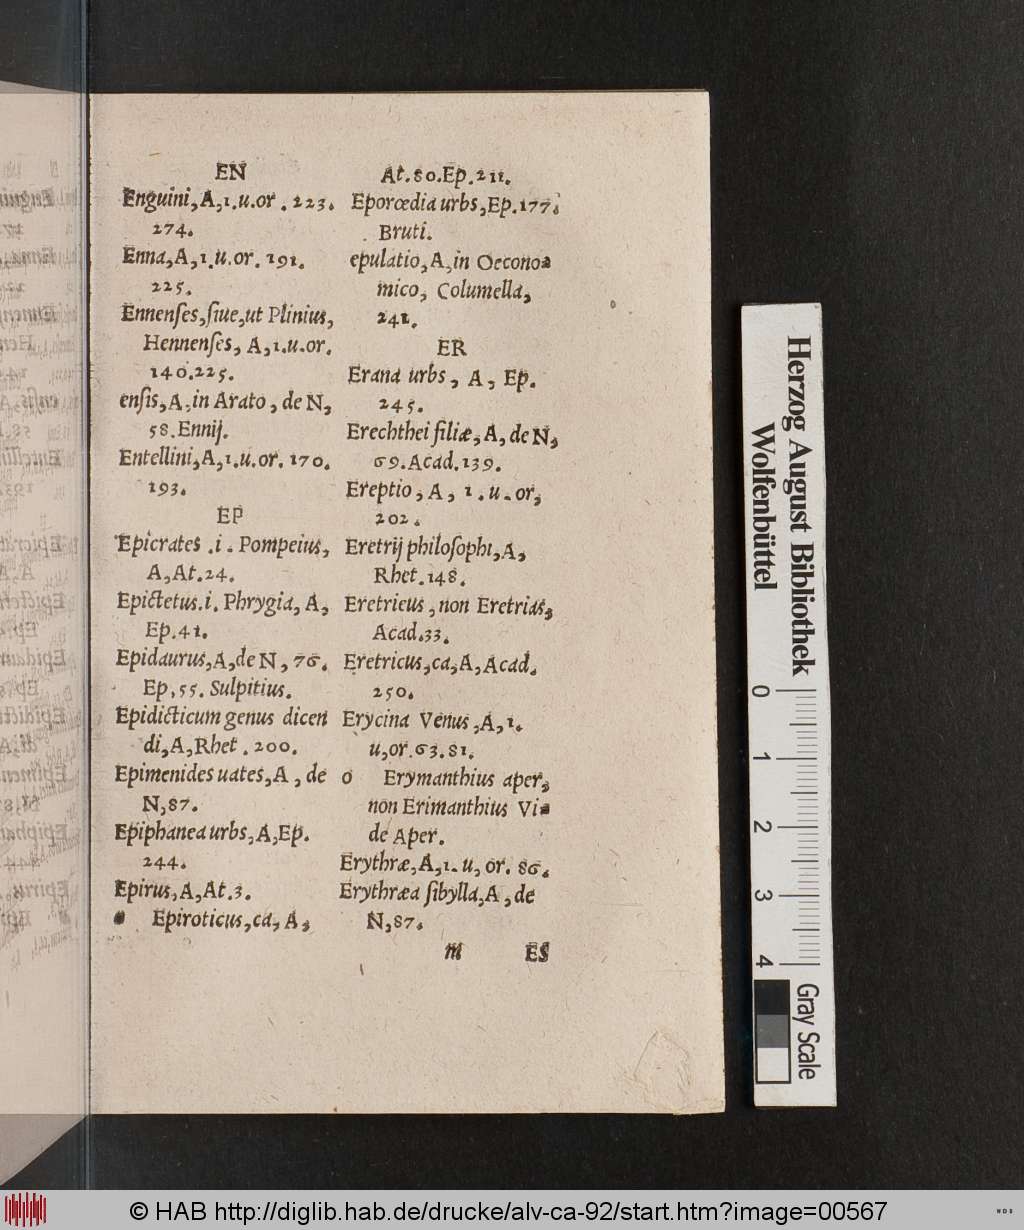 EN
Enguini, A, 1. u. or. 223.
274.
Enna, A, 1. u. or. 191.
225.
Ennenſes, ſiue, ut Plinius,
Hennenſes, A, 1. u. or.
140. 225.
enſis, A, in Arato, de N,
58. Ennij.
Entellini, A, 1. u. or. 170.
193.
EP
Epicrates .i. Pompeius,
A, At. 24.
Epictetus .i. Phrygia, A,
Ep. 41.
Epidaurus, A, de N, 76.
Ep, 55. Sulpitius.
Epidicticum genus dicen
di, A, Rhet. 200.
Epimenides uates, A, de
N, 87.
Epiphanea urbs, A, Ep.
244.
Epirus, A, At. 3.
Epiroticus, ca, A,
At. 80. Ep. 211.
Eporœdia urbs, Ep. 177.
Bruti.
epulatio, A, in Oecono-
mico, Columella,
241.
ER
Erana urbs, A, Ep.
245.
Erechthei filiæ, A, de N,
69. Acad. 139.
Ereptio, A, 1. u. or,
202.
Eretrij philoſophi, A,
Rhet. 148.
Eretrieus, non Eretrias,
Acad. 33.
Eretricus, ca, A, Acad.
250.
Erycina Venus, A, 1.
u, or. 63. 81.
o Erymanthius aper,
non Erimanthius Vi-
de Aper.
Erythræ, A, 1. u, or. 86.
Erythræa ſibylla, A, de
N, 87.
m ES
Herzog August Bibliothek
Wolfenbüttel
0 1 2 3 4
Gray Scale
© HAB http://diglib.hab.de/drucke/alv-ca-92/start.htm?image=00567